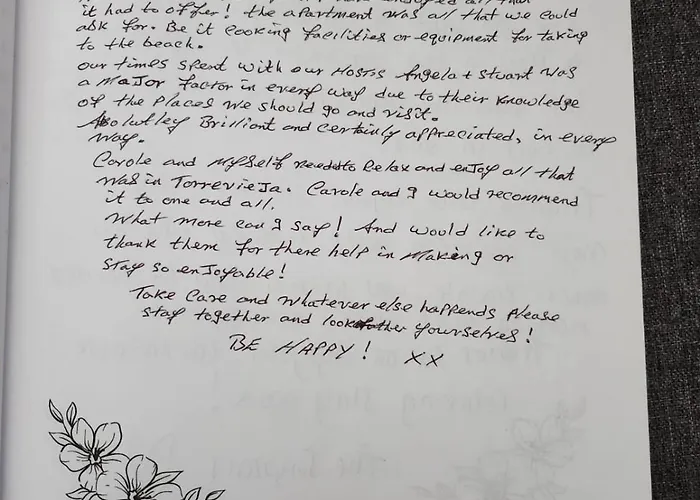 enjoyed all that
it had to offer! the apartment was all that we could
ask for. Be it cooking facilities or equipment for taking
to the beach.
our times spent with our Hosts Angela + Stuart was
a Major factor in every way due to their knowledge
of the places we should go and visit.
Absolutley Brilliant and certainly appreciated, in every
way.
Carole and myself needed to Relax and enjoy all that
was in Torrevieja. Carole and I would recommend
it to one and all.
What more can I say! And would like to
thank them for there help in Making or
stay so enjoyable!
Take Care and whatever else happends Please
stay together and look after yourselves!
BE HAPPY! XX